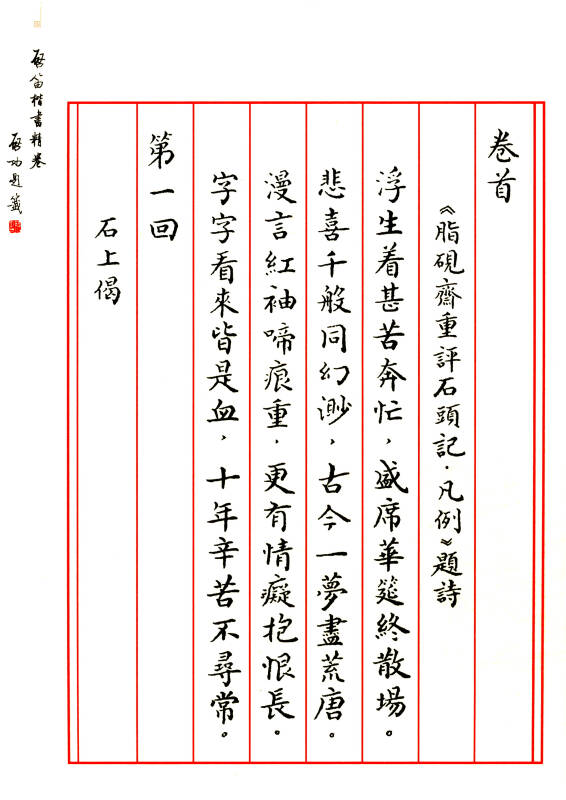 卷首
《脂硯齋重評石頭記·凡例》題詩
浮生着甚苦奔忙,盛席華筵終散場。
悲喜千般同幻渺,古今一夢盡荒唐。
漫言紅袖啼痕重,更有情癡抱恨長。
字字看來皆是血,十年辛苦不尋常。
第一回
石上偈
啟笛楷書精卷
啟功題籤